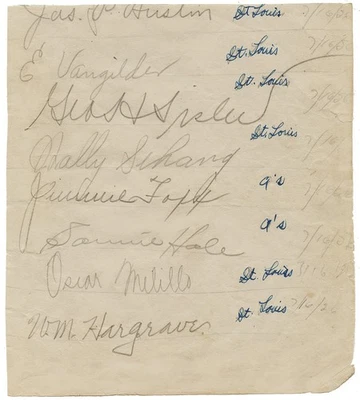 Jas. P. Austin St Louis
E Vangilder St. Louis
Geo H Sisler St. Louis
Wally Schang St. Louis
Jimmie Foxx A's
Sammie Hale A's
Oscar Melillo St. Louis
Wm. Hargrave. St. Louis